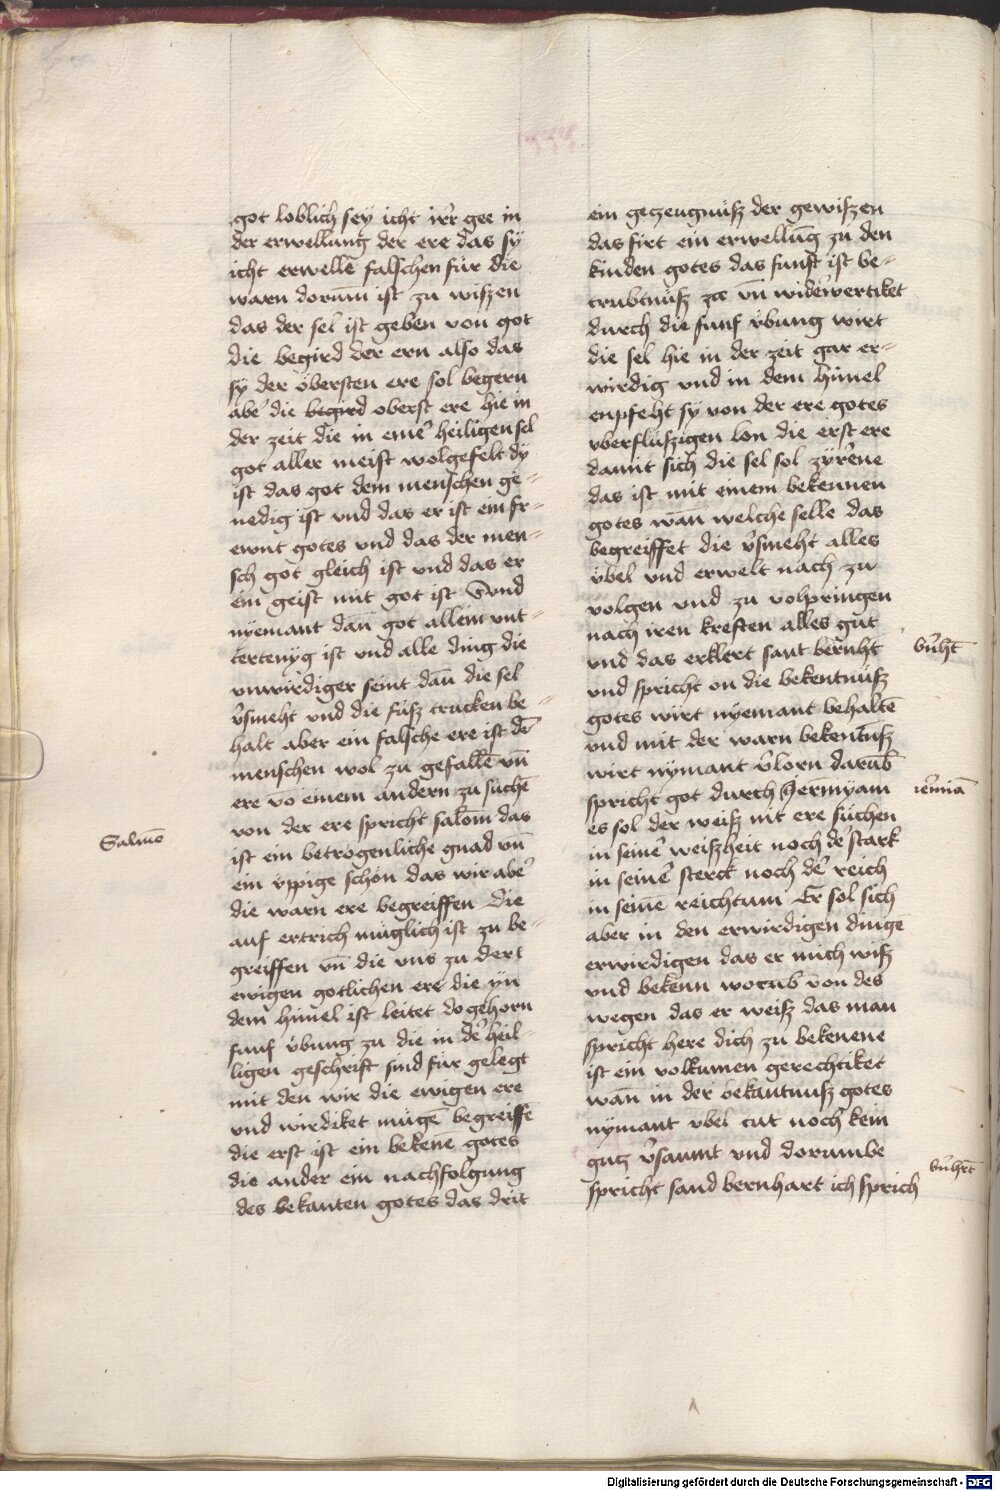 got loblich sey icht irr gee in
der erwellung der ere das sy
icht erwelle falschen für die
warn dorum̄ ist zu wiszen
das der sel ist geben von got
die begird der ern also das
sy der öbersten ere sol begern
abe᷑ die begird oberst ere hie in
der zeit die in eine᷑ heiligen sel
got aller meist wolgefelt dy
ist das got dem menschen ge-
nedig ist vnd das er ist ein fr-
ewnt gotes vnd das der men-
sch got gleich ist vnd das er
ein geist mit got ist Vnd
nyemant dan̄ got allein vnt-
tertenig ist vnd alle ding die
vnwirdiger seint dan̄ die sel
v᷑smeht vnd die füsz trucken be-
halt aber ein falsche ere ist de᷑
menschen wol zu gefallē vn̄
ere vō einem andern zu suchē
von der ere spricht salom̄ das
ist ein betrogenliche gnad vn̄
ein üppige schön das wir abe᷑
die warn ere begreiffen die
auf ertrich müglich ist zu be-
greiffen vn̄ die vns zu dert
ewigen gotlichen ere die yn
dem himel ist leitet do gehorn
funf übung zu die in de᷑ heil-
ligen geschrift sind für gelegt
mit den wir die ewigen ere
vnd wirdiket mügē begreiffē
die erst ist ein bekenē gotes
die ander ein nachfolgung
des bekanten gotes das drit
Salmō
ein gezeugnüsz der gewiszen
das firt ein erwellūg zu den
kinden gotes das funft ist be-
trubtnüsz vn̄ wide᷑wertiket
durch die funf übung wirt
die sel hie in der zeit gar er-
wirdig vnd in dem himel
enpfeht sy von der ere gotes
vberflüszigen lon die erst ere
damit sich die sel sol zyrene
das ist mit einem bekennen
gotes wan̄ welche selle das
begreiffet die v᷑smeht alles
übel vnd erwelt nach zu
volgen vnd zu volpringen
nach iren kreften alles gut
vnd das erklert sant bernht
vnd spricht on die bekentnüsz
gotes wirt nyemant behaltē
vnd mit der warn bekentnüsz
wirt nymant v᷑lorn darūb
spricht got durch Jermyam
es sol der weisz nit ere suchen
in seine᷑ weiszheit noch de᷑ stark
in seine᷑ sterck noch de᷑ reich
in seinē reichtum Er sol sich
aber in den erwirdigen dingē
erwirdigen das er mich wisz
vnd bekenn worūb von des
wegen das er weisz das man
spricht here dich zu bekenene
ist ein volkumen gerechtiket
wan̄ in der bekantnusz gotes
nymant vbel tut noch kein
gutz v᷑saumt vnd dorumbe
spricht sand bernhart ich sprich
b᷑nht̄
ie᷑miā
b᷑nhrt̄
Digitalisierung gefördert durch die Deutsche Forschungsgemeinschaft - DFG